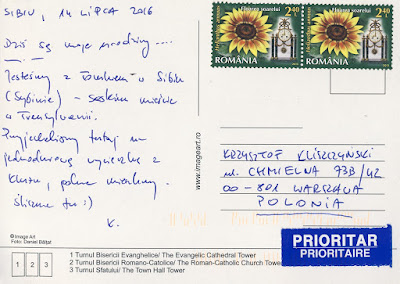 SIBIU, 14 LIPCA 2016
Dziś są moje urodziny ....
Jesteśmy z Tomkiem w Sibiu
(Sybinie) - saskim mieście
w Transylwanii.
Przyjechaliśmy tutaj na
jednodniową wycieczkę z
Klużu, gdzie mieszkamy.
Ślicznie tu :)
K.
Floarea soarelui
2,40 L
ROMÂNIA
Floarea soarelui
2,40 L
ROMÂNIA
www.imageart.ro
KRZYSZTOF KLISZCZYŃSKI
ul. CHMIELNA 73B/42
00-801 WARSZAWA
POLONIA
PRIORITAR
PRIORITAIRE
© Image Art
Foto: Daniel Bălţat
1 2 3
1 Turnul Bisericii Evanghelice/ The Evangelic Cathedral Tower
2 Turnul Bisericii Romano-Catolice/ The Roman-Catholic Church Tower
3 Turnul Sfatului/ The Town Hall Tower